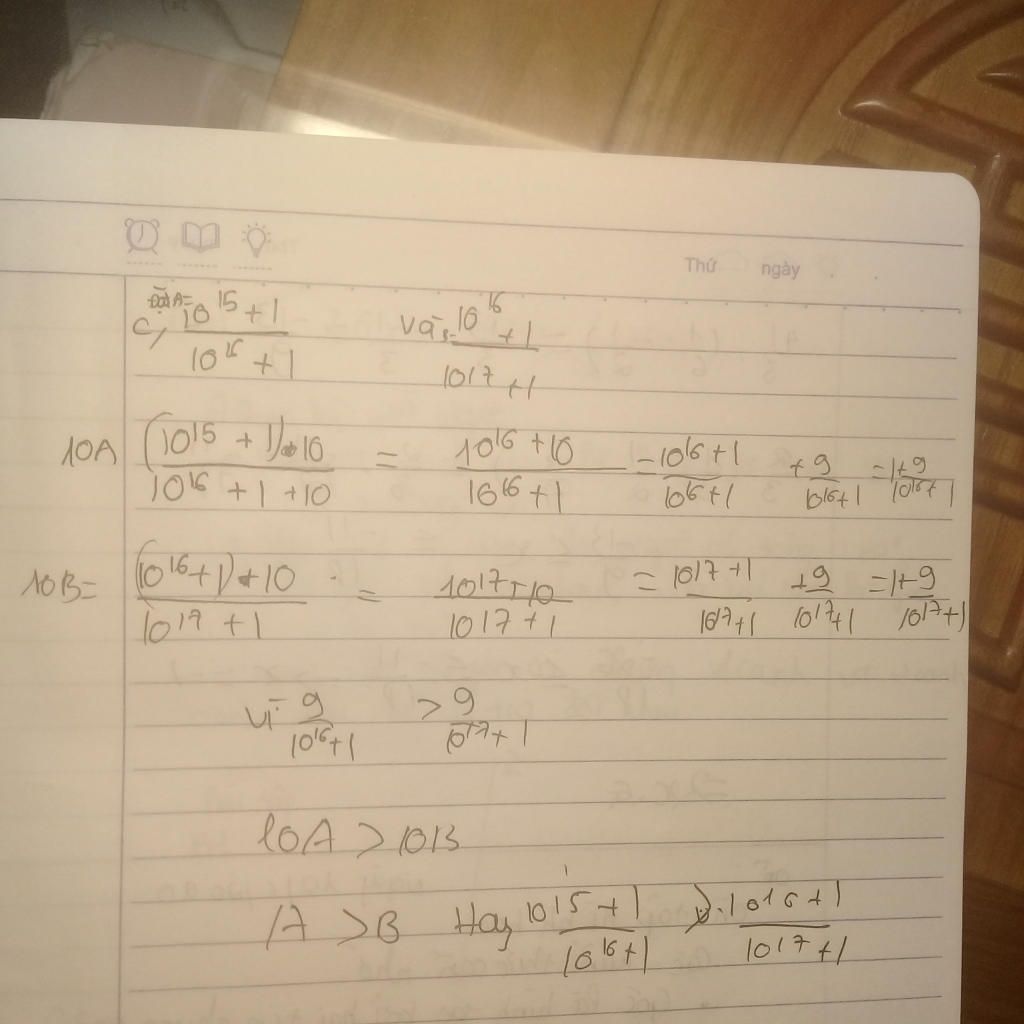 Thứ ngày
c, Đặt A= \frac{10^{15}+1}{10^{16}+1} và B= \frac{10^{16}+1}{10^{17}+1}
10A \frac{(10^{15}+1)*10}{10^{16}+1+10} = \frac{10^{16}+10}{10^{16}+1} = \frac{10^{16}+1}{10^{16}+1} + \frac{9}{10^{16}+1} = 1+\frac{9}{10^{16}+1}
10B= \frac{(10^{16}+1)*10}{10^{17}+1} = \frac{10^{17}+10}{10^{17}+1} = \frac{10^{17}+1}{10^{17}+1} + \frac{9}{10^{17}+1} = 1+\frac{9}{10^{17}+1}
Vì \frac{9}{10^{16}+1} > \frac{9}{10^{17}+1}
10A > 10B
A > B Hay \frac{10^{15}+1}{10^{16}+1} > \frac{10^{16}+1}{10^{17}+1}